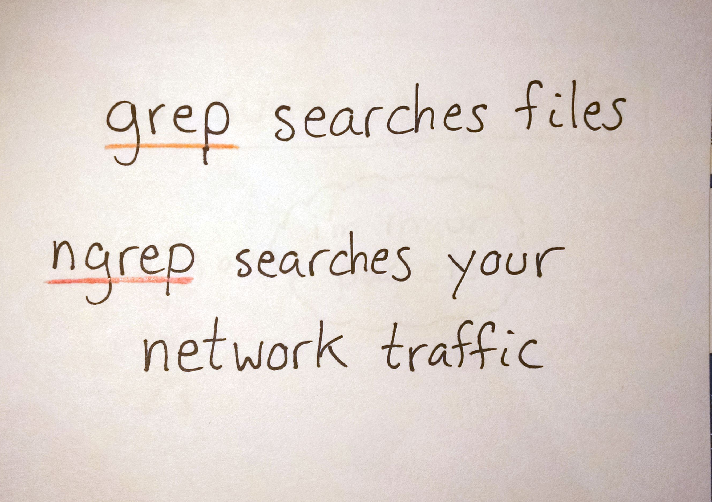 grep searches files
ngrep searches your
network traffic